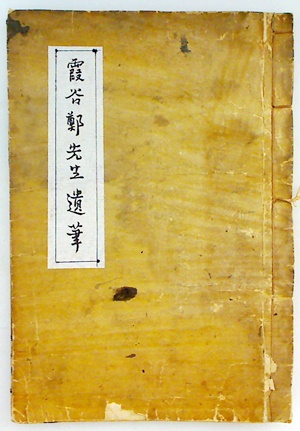 霞谷鄭先生遺筆